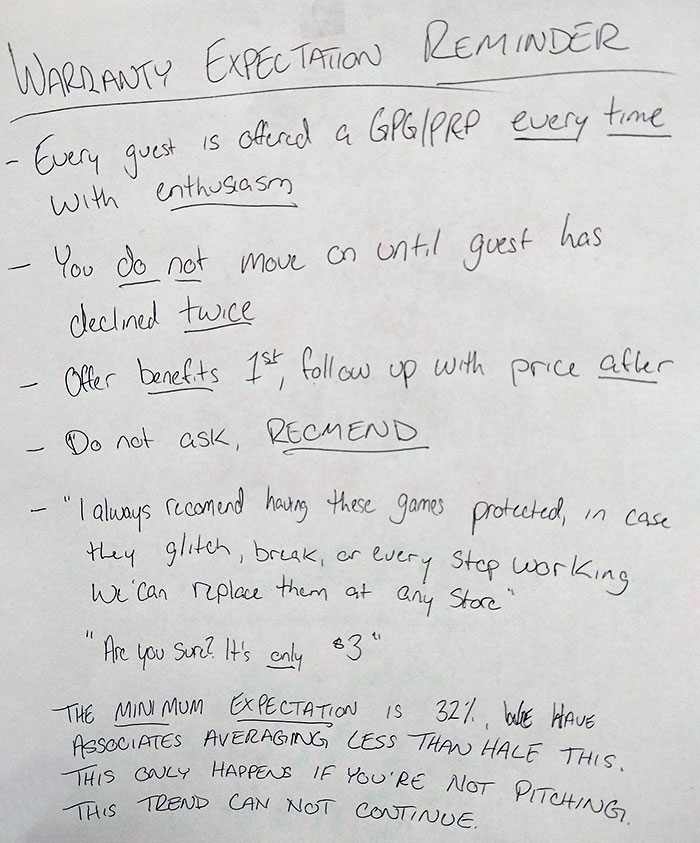 WARRANTY EXPECTATION REMINDER
- Every guest is offered a GPG/PRP every time
with enthusiasm
- You do not move on until guest has
declined twice
- Offer benefits 1st, follow up with price after
- Do not ask, RECMEND
- "I always recomend having these games protected, in case
they glitch, break, or every stop working
We can replace them at any store"
"Are you sure? It's only $3"
THE MINIMUM EXPECTATION IS 32%, WE HAVE
ASSOCIATES AVERAGING LESS THAN HALF THIS.
THIS ONLY HAPPENS IF YOU'RE NOT PITCHING.
THIS TREND CAN NOT CONTINUE.